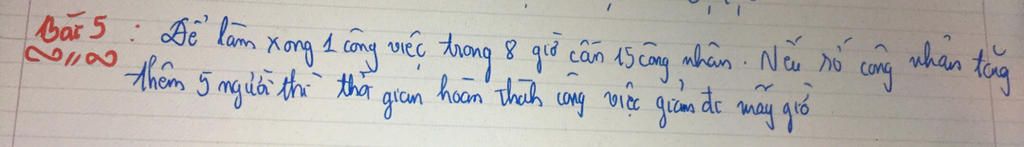 Bài 5 : Để làm xong 1 công việc trong 8 giờ cần 15 công nhân. Nếu số công nhân tăng
thêm 5 người thì thời gian hoàn thành công việc giảm đc mấy giờ